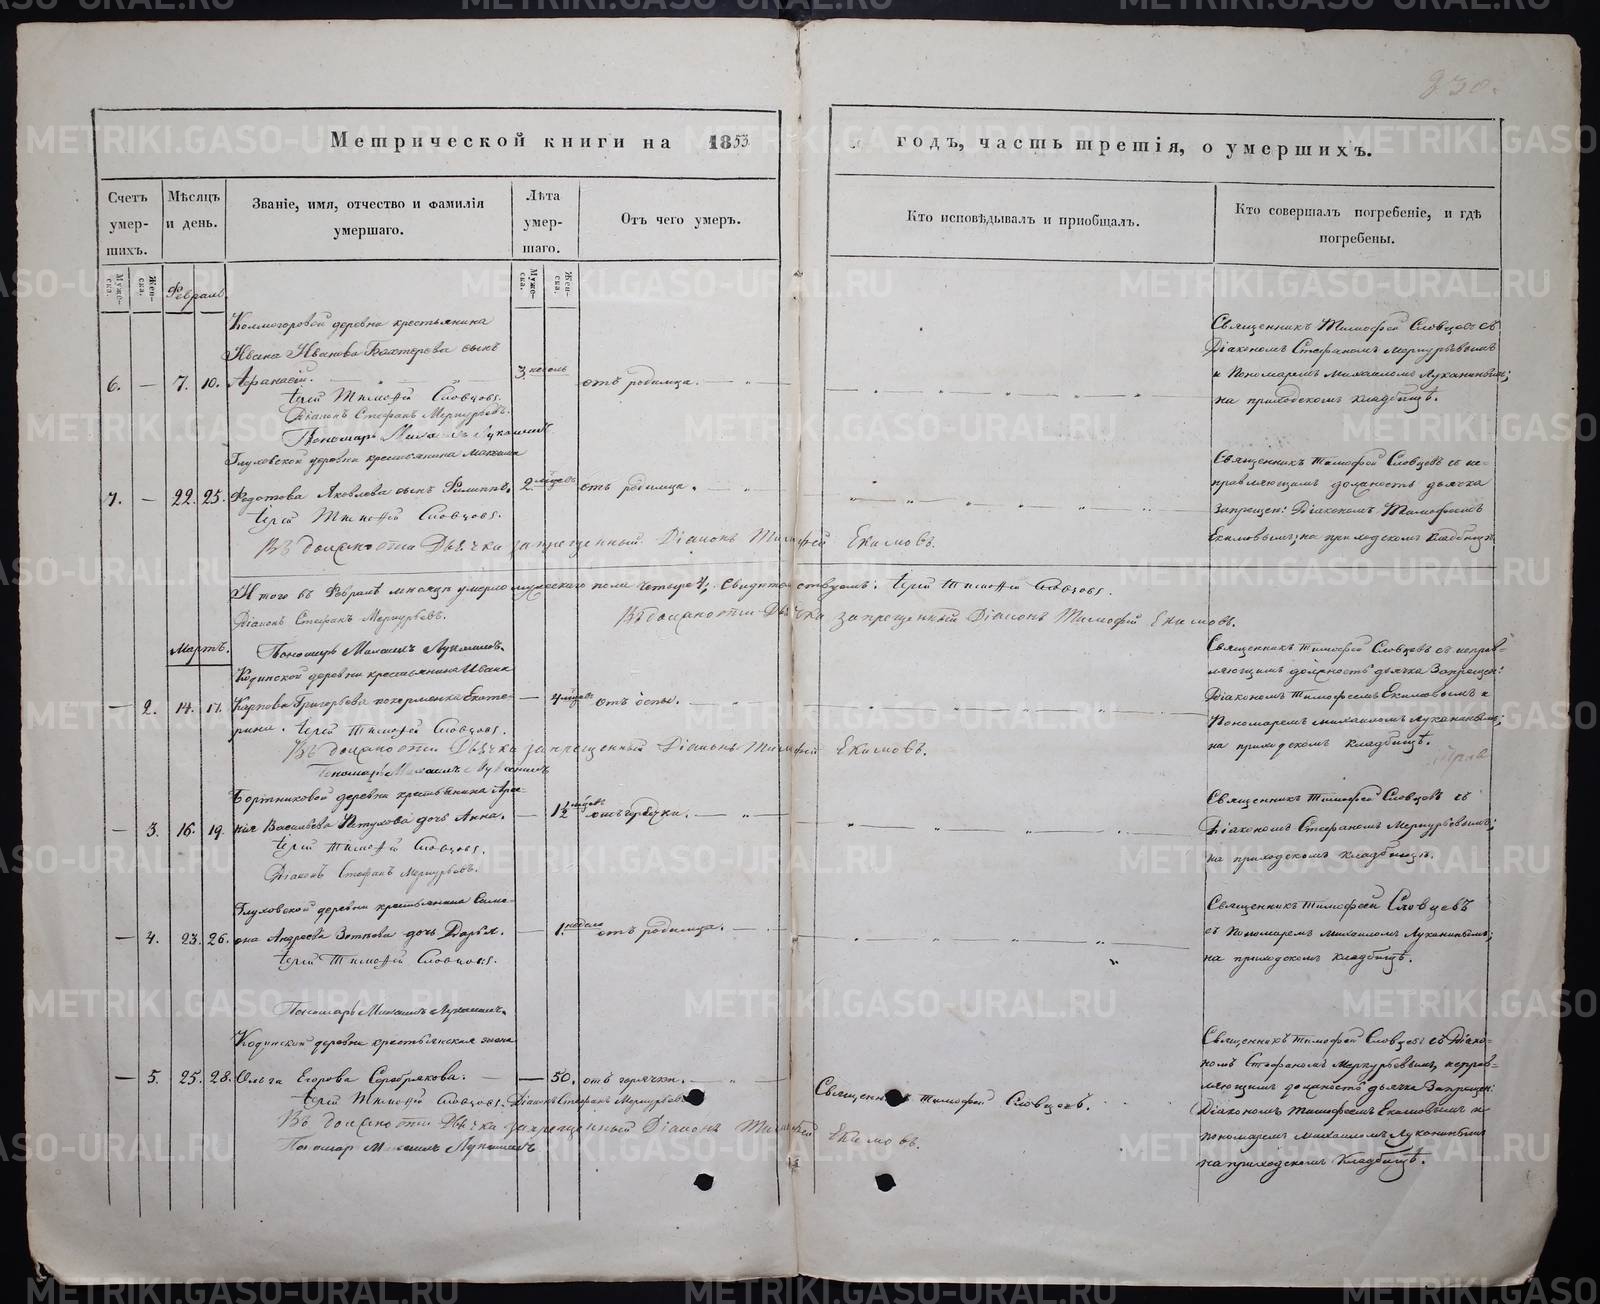 230.
Метрической книги на 1853
годъ, часть третія, о умершихъ.
Счетъ умер-шихъ.
Мѣсяцъ и день.
Званіе, имя, отчество и фамилія умершаго.
Лѣта умер-шаго.
Отъ чего умеръ.
Кто исповѣдывалъ и пріобщалъ.
Кто совершалъ погребеніе, и гдѣ погребены.
Мужс-ска.
Жен-ска.
Мужс-ска.
Жен-ска.
Февраль.
Колмогоровой деревни крестьянина
Ивана Иванова Бахтерева сынъ
6. — 7. 10. Афанасій. 3. недель отъ родимца.
Іерей Тимофей Словцовъ.
Діаконъ Стефанъ Меркурьевъ.
Пономарь Михаилъ Луканинъ
Священникъ Тимофей Словцовъ съ
Діакономъ Стефаномъ Меркурьевымъ
и Пономаремъ Михаиломъ Луканинымъ;
на приходскомъ кладбищѣ.
Глуховской деревни крестьянина Максима
7. — 22. 25. Федотова Яковлева сынъ Филиппъ. 2. мѣсяцъ отъ родимца.
Іерей Тимофей Словцовъ.
Въ должности Дьячка запрещенный Діаконъ Тимофей Екимовъ.
Священникъ Тимофей Словцовъ съ ис-
правляющимъ должность дьячка
запрещен: Діакономъ Тимофеемъ
Екимовымъ; на приходскомъ кладбищѣ
Итого въ Февралѣ месяцѣ умерло мужескаго пола четыре 4; Свидетельствуемъ: Іерей Тимофей Словцовъ.
Діаконъ Стефанъ Меркурьевъ.
Въ должности Дьячка запрещенный Діаконъ Тимофей Екимовъ.
Мартъ.
Пономарь Михаилъ Луканинъ.
Кодинской деревни крестьянина Ивана
— 2. 14. 17. Карпова Григорьева покормленка Екате-
рина. — 4 мѣсяцъ отъ оспы.
Іерей Тимофей Словцовъ.
Въ должности Дьячка запрещенный Діаконъ Тимофей Екимовъ.
Пономарь Михаилъ Луканинъ
Священникъ Тимофей Словцовъ съ исправ-
ляющимъ должность дьячка Запрещен:
Діакономъ Тимофеемъ Екимовымъ и
Пономаремъ Михаиломъ Луканинымъ;
на приходскомъ кладбищѣ.
Бортниковой деревни крестьянина
— 3. 16. 19. Васильева Петухова дочь Анна. — 1½ отъ горячки.
Іерей Тимофей Словцовъ.
Діаконъ Стефанъ Меркурьевъ.
Священникъ Тимофей Словцовъ съ
Діакономъ Стефаномъ Меркурьевымъ;
на приходскомъ кладбищѣ.
Глуховской деревни крестьянина Симе-
— 4. 23. 26. она Андреева Зотеева дочь Дарья. — 1. неделя отъ родимца.
Іерей Тимофей Словцовъ.
Пономарь Михаилъ Луканинъ.
Священникъ Тимофей Словцовъ
съ Пономаремъ Михаиломъ Луканинымъ;
на приходскомъ кладбищѣ.
Кодинской деревни крестьянская жена
— 5. 25. 28. Ольга Егорова Серебрякова. — 50. отъ горячки.
Іерей Тимофей Словцовъ. Діаконъ Стефанъ Меркурьевъ
Въ должности Дьячка запрещенный Діаконъ Тимофей Екимовъ.
Пономарь Михаилъ Луканинъ
Священникъ Тимофей Словцовъ.
Священникъ Тимофей Словцовъ съ Діако-
номъ Стефаномъ Меркурьевымъ, исправ-
ляющимъ должность дьячка Запрещен:
Діакономъ Тимофеемъ Екимовымъ и
пономаремъ Михаиломъ Луканинымъ
на приходскомъ Кладбищѣ.
METRIKI.GASO-URAL.RU